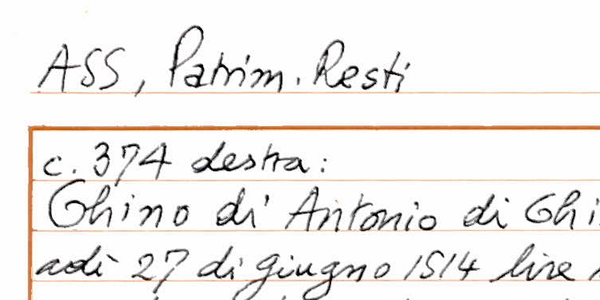 ASS, Patrim. Resti
c. 374 destra:
Ghino di Antonio di Ghi
adì 27 di giugno 1514 lire